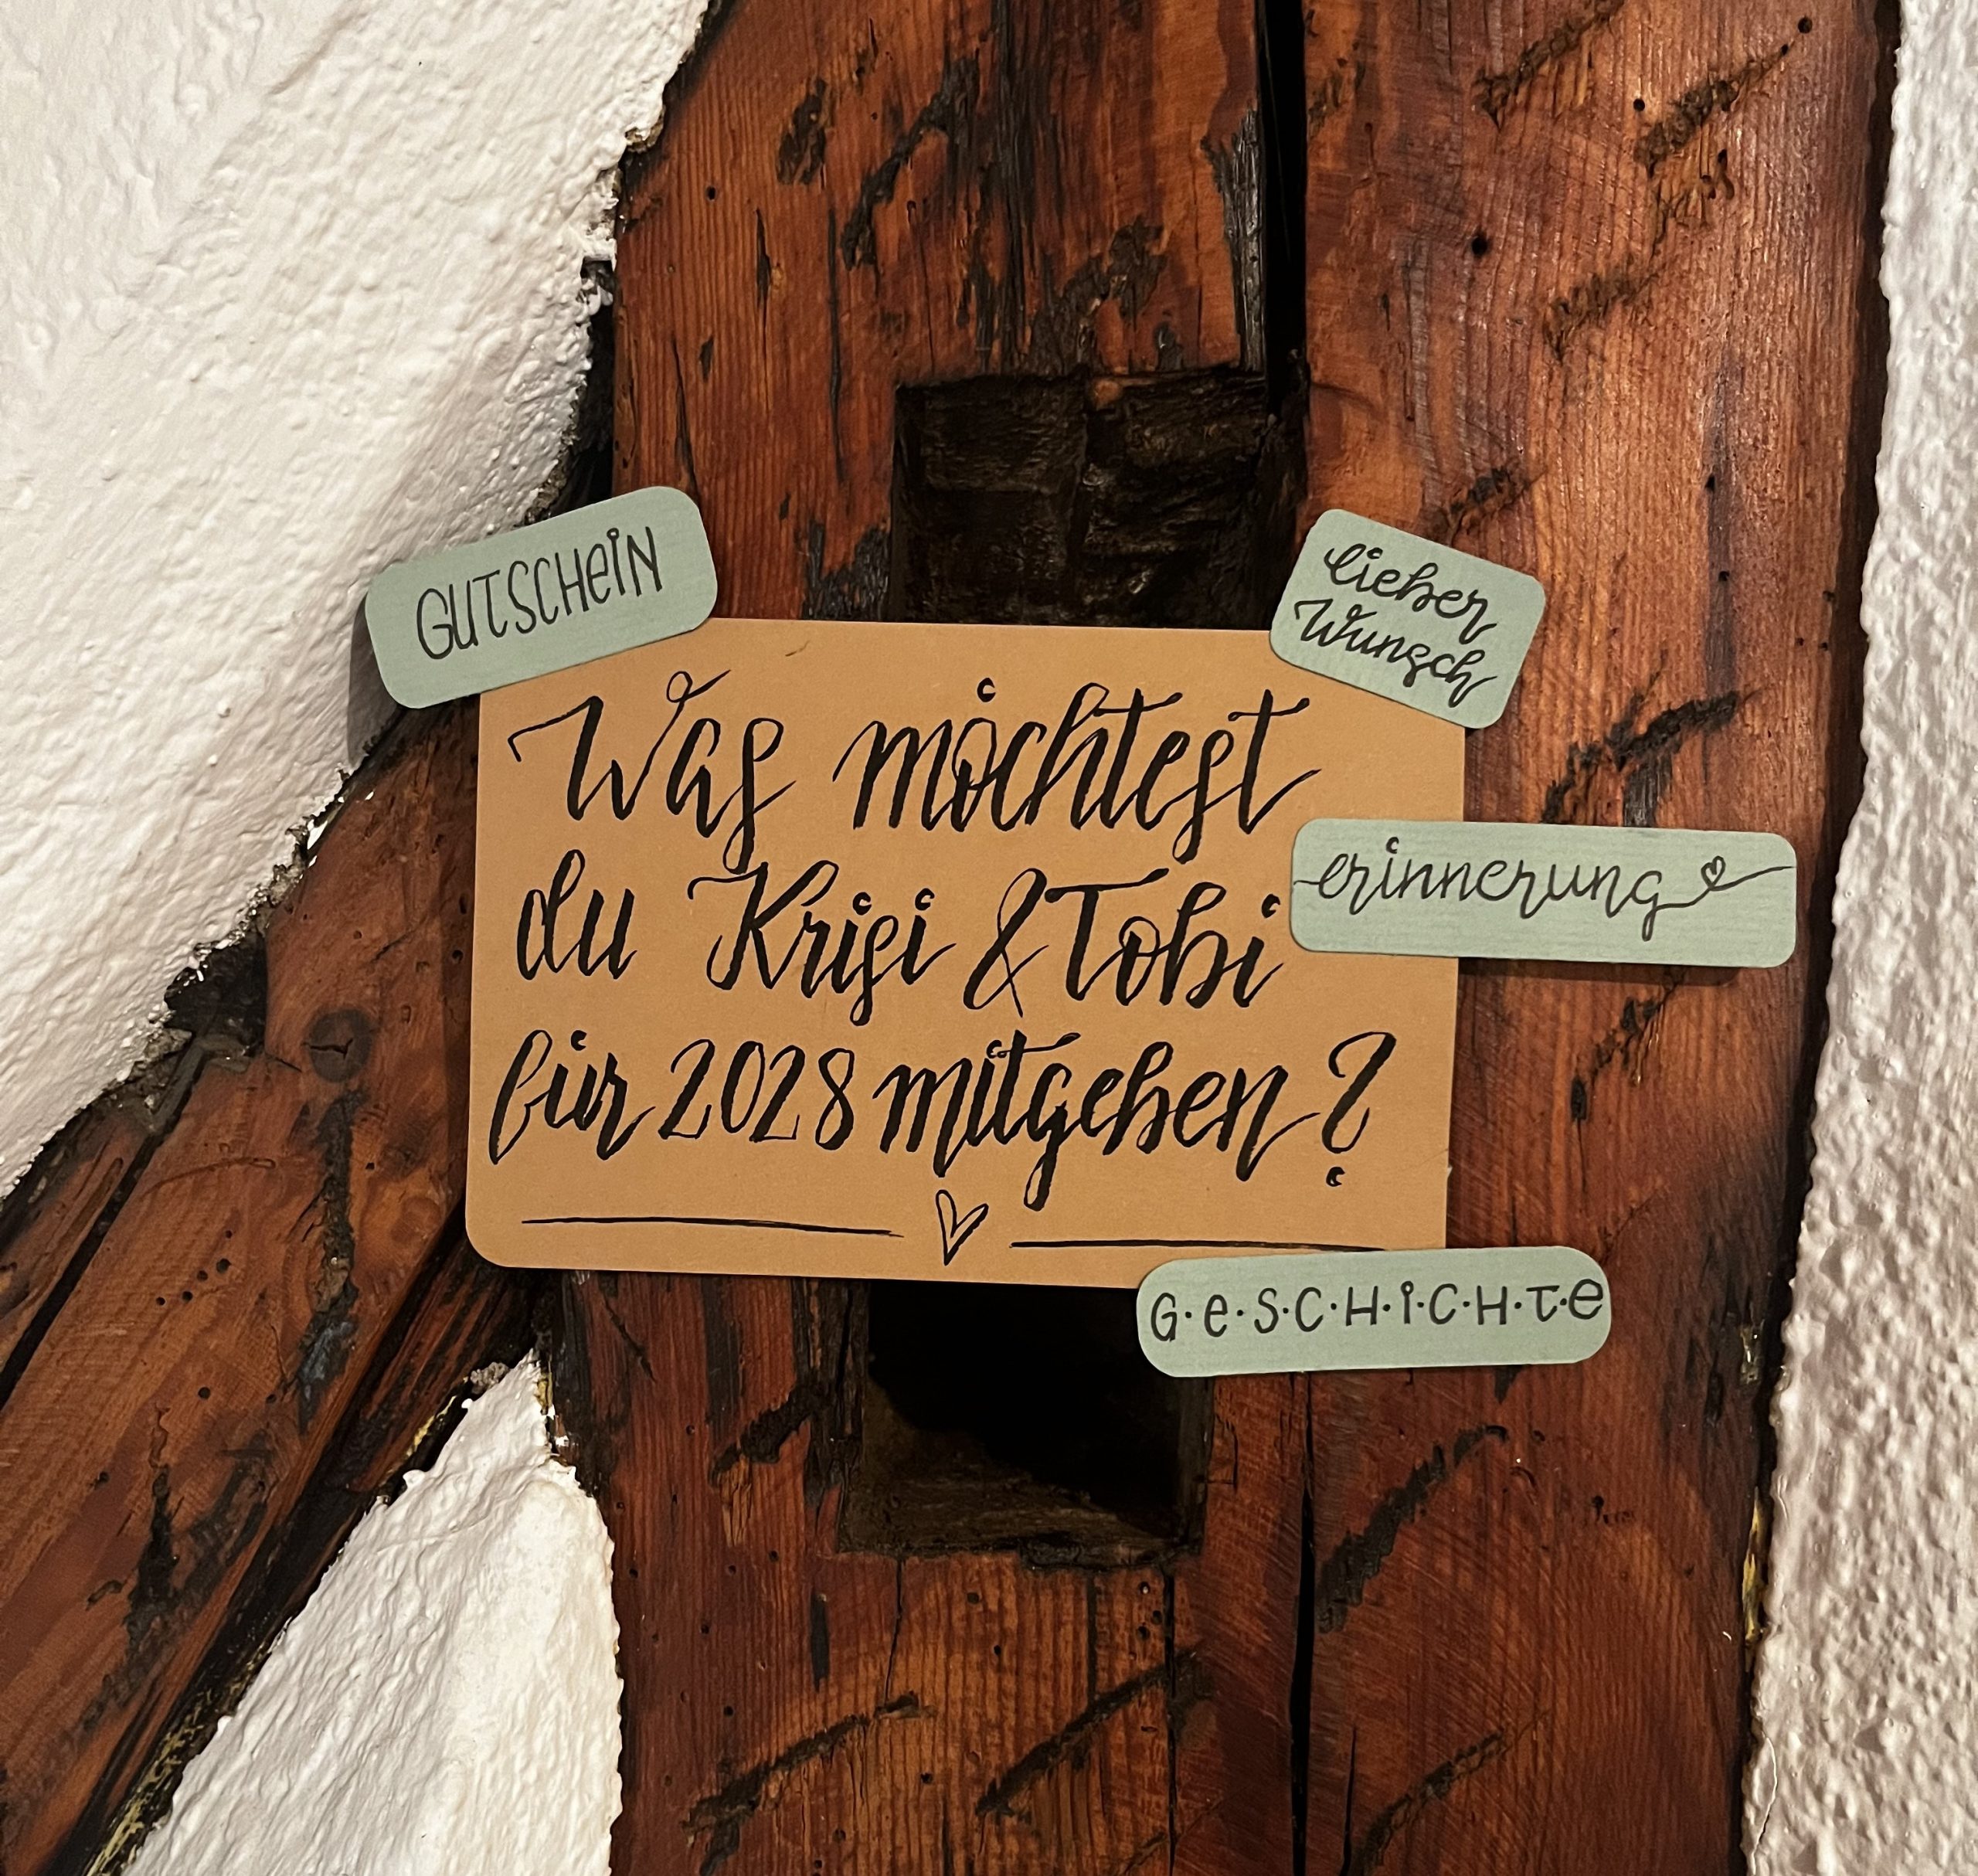 GUTSCHEiN
lieber
Wunsch
Was möchtest
du Krisi & Tobi
für 2028 mitgeben?
erinnerung
G·e·S·C·H·i·C·H·T·e